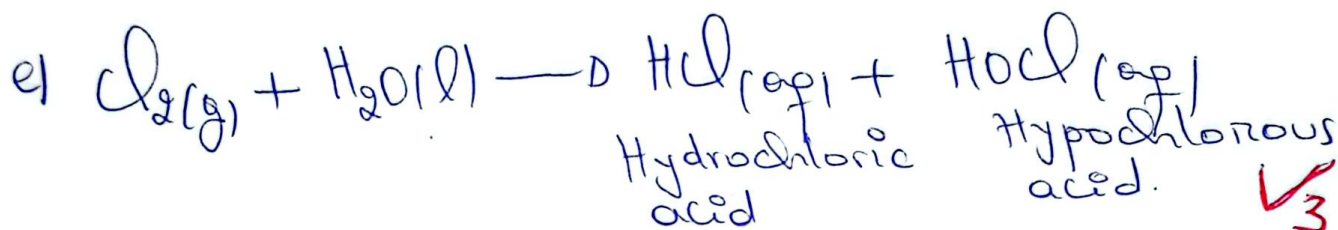 e) Cl₂(g) + H₂O(l) → HCl(aq) + HOCl(aq)
Hydrochloric Hypochlorous
acid acid.
√3